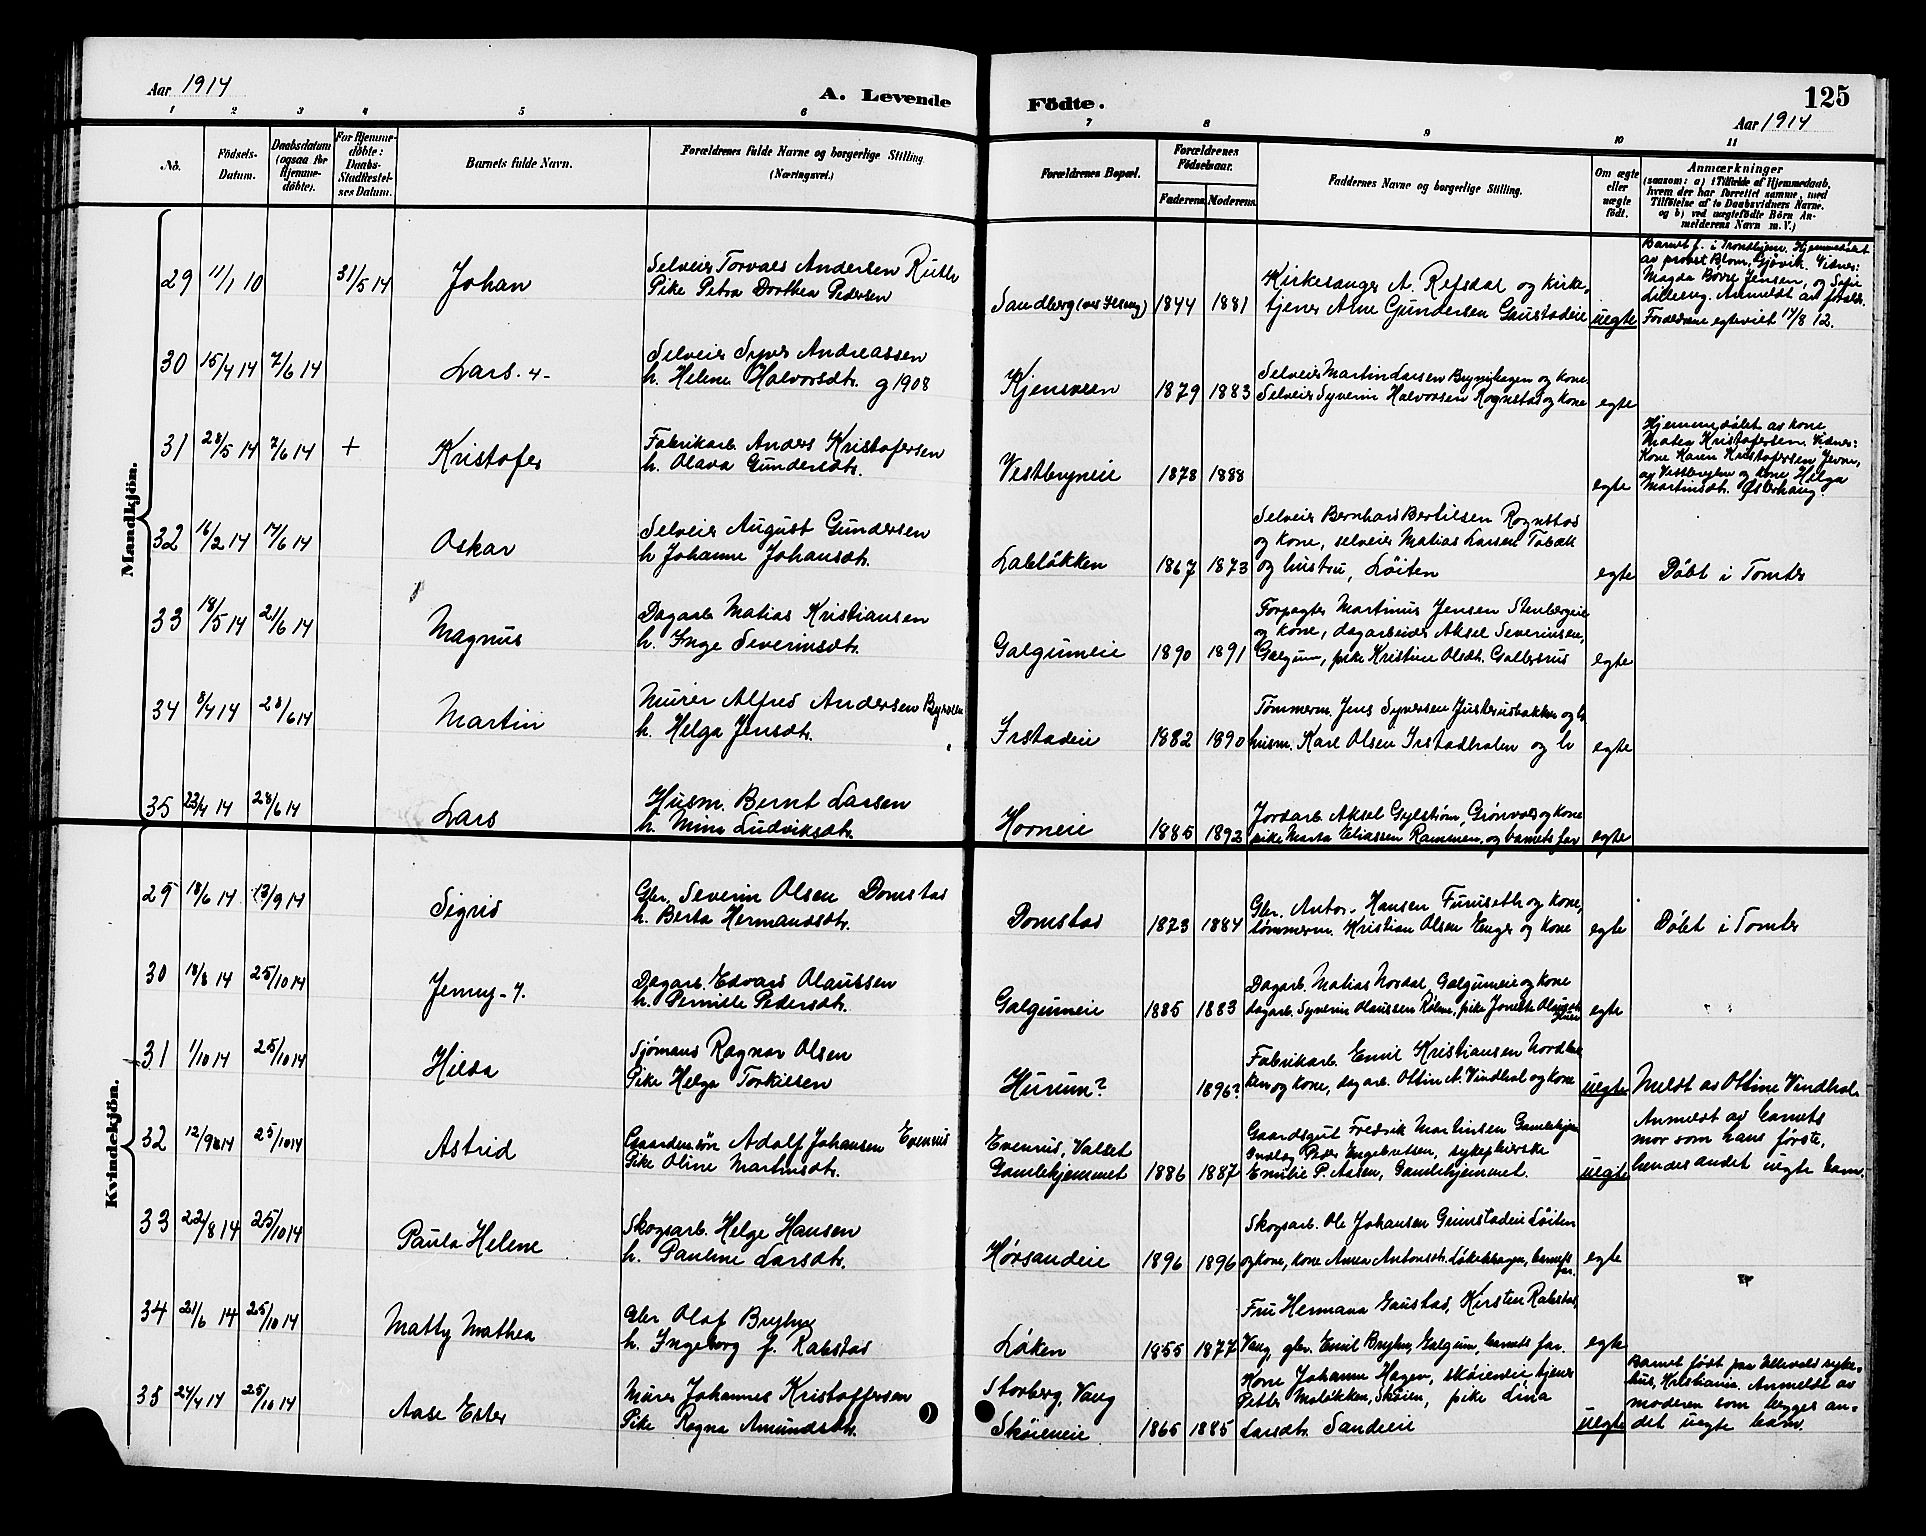 Aar 1914
A. Levende Födte.
125
Aar 1914
1 2 3 4 5 6 7 8 9 10 11
No.
Födsels-Datum.
Daabsdatum (ogsaa for Hjemme-döbte).
For Hjemme-döbte: Daabs-Stadfæstel-ses Datum.
Barnets fulde Navn.
Forældrenes fulde Navne og borgerlige Stilling (Næringsvei.)
Forældrenes Bopæl.
Forældrenes Födselsaar.
Faderens
Moderens
Faddernes Navne og borgerlige Stilling.
Om ægte eller uægte födt.
Anmærkninger
(saasom: a) i Tilfælde af Hjemmedaab, hvem der har forrettet samme, med Tilföielse af to Daabsvidners Navne. og b) ved uægtefödte Börn An-melderens Navn m. V.)
Mandkjön.
29 11/1 10 31/5 14 Johan
Selveier Torvald Andersen
Pike Petra Dorthea Pedersen
Sandberg 1844 1881
Kirkesanger A. Refsdal og kirke-
tjener Arne Gundersen Gaustadeie
uegte
Barnet f. i Trondhjem. Hjemmedøbt
av provst Blom, Gjøvik. Vidner:
Magda Børre Jensen, og
Anmeldt av
Forældrene egteviet 17/8 12.
30 15/4 14 7/6 14 Lars. 4-
Selveier Syver Andreassen
h. Helene Halvorsdtr. g 1908
Kjensveen 1879 1883
Selveier Martin Larsen Brynihagen og kone.
Selveier Syverin Halvorsen Rognstad og kone
egte
31 28/5 14 7/6 14 + Kristofer
Fabrikarb. Anders Kristofersen
h. Olava Gundersdtr.
Vestbyneie 1878 1888
egte
Hjemmedøbt av kone
Matea Kristofersen. Vidner:
Kone Karen Kristofersen
og kone Helga
Martinsdtr. Østerhaug.
32 16/2 14 17/6 14 Oskar
Selveier August Gundersen
h Johanne Johansdtr.
Labløkken 1867 1873
Selveier Bernhard Bertilsen Rognstad
og kone, selveier Matias Larsen
og hustru, Løiten
egte
Døbt i Tomter
33 18/5 14 21/6 14 Magnus
Dagarb Matias Kristiansen
h. Inge Severinsdtr.
Galgumeie 1890 1891
Forpagter Martinus Jensen Stenbergeie
og kone, dagarbeider Aksel Severinsen,
Galgum, pike Kristine Olsdtr. Gallerud
egte
34 8/4 14 28/6 14 Martin
Murer Alfred Andersen
h. Helga Jensdtr.
Irstadeie 1882 1890
Tømmerm. Jens Syversen og h
husm. Karl Olsen Irstadhalen og h
egte
35 23/4 14 28/6 14 Lars
Husm. Bernt Larsen
h. Mina Ludviksdtr.
Horneie 1885 1892
Jordarb. Aksel Gylstrøm, Grønvold og kone
pike Marta Eliassen Rammen, og barnets far
egte
Kvindekjön.
29 18/6 14 13/9 14 Sigrid
Gbr. Severin Olsen Domstad
h. Berta Hermandsdtr.
Domstad 1873 1884
Gbr. Anton Hansen Furuseth og kone,
tømmerm. Kristian Olsen Enger og kone
egte
Døbt i Tomter
30 18/8 14 25/10 14 Jenny-7.
Dagarb. Edvard Olaussen
h. Pernille Pedersdtr.
Galgumeie 1885 1883
Dagarb. Matias Nordal, Galgumeie og kone
dagarb. Syverin Olaussen, pike
egte
31 1/10 14 25/10 14 Hilda
Sjømand Ragnar Olsen
Pike Helga Torkilsen
Hurum? 1896?
Fabrikarb. Emil Kristiansen Nordbak-
ken og kone, dagarb. Ottin A. Vindhol og kone
uegte
Meldt av Ottine Vindhol.
32 12/9 14 25/10 14 Astrid
Gaardersøn Adolf Johansen Evenrud
Pike Oline Martinsdtr.
Evenrud, Vallset
Gamlehjemmet 1886 1887
Gaardsgut Fredrik Martinsen Gamlehjem
Peder Engebretsen, sykepleierske
Emilie P. Aasen, Gamlehjemmet.
uegte
Anmeldt av barnets
mor som hans første,
hendes andet uegte barn.
33 22/8 14 25/10 14 Paula Helene
Skogsarb. Helge Hansen
h. Pauline Larsdtr.
Hørsandeie 1896 1896
Skogsarb. Ole Johansen Grimstadeie Løiten
og kone, kone Anna Antonsdtr. Løkenhagen, barnets far.
egte
34 21/6 14 25/10 14 Matty Mathea
Gbr Olaf Bryhn
h. Ingeborg f. Rabstad
Løken 1855 1877
Fru Hermana Gaustad, Kirsten Rabstad,
Vang, gbr. Emil Bryhn, Galgum, barnets far.
egte
35 24/4 14 25/10 14 Aase Ester
Murer Johannes Kristoffersen
Pike Ragna Amundsdtr.
Storberg, Vang
Skøieneie 1865 1885
Kone Johanne Hagen, Skøieneie, tjener
Petter Moløkken, Skøien, pike Lina
Larsdtr. Sandeie
uegte
Barnet født paa Ullevold syke-
hus, Kristiania. Anmeldt av
moderen som begges an-
det uegte barn.